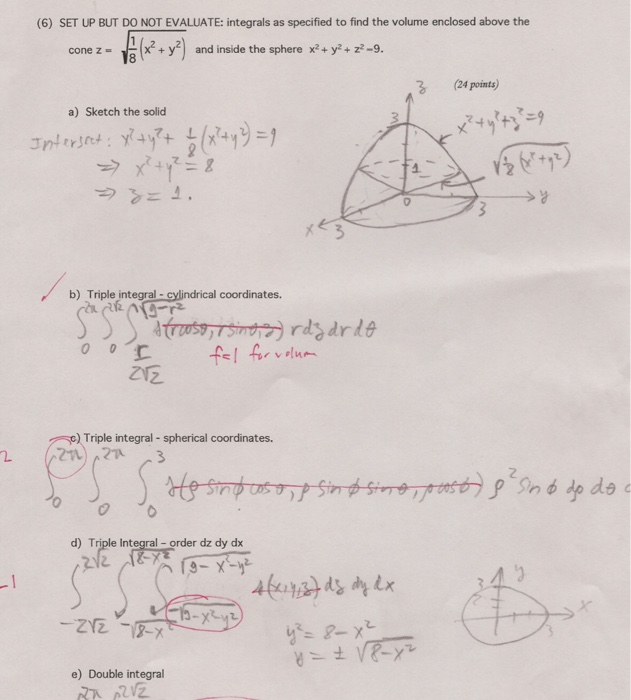 (6) SET UP BUT DO NOT EVALUATE: integrals as specified to find the volume enclosed above the
cone z = √(1/8 (x² + y²)) and inside the sphere x² + y² + z² =9.
(24 points)
a) Sketch the solid
Intersect: x²+y²+ 1/8 (x²+y²) = 9
⇒ x²+y² = 8
⇒ z = 1.
z
3
x²+y²+z²=9
√(1/8 (x²+y²))
1
0
y
3
x
3
b) Triple integral - cylindrical coordinates.
∫₀^2π ∫₀^2√2 ∫_(r/2√2)^√(9-r²) f(rcosθ, rsinθ, z) rdzdrdθ
f=1 for volum
2
c) Triple integral - spherical coordinates.
∫₀^2π ∫₀^2π ∫₀^3 f(ρ sinφ cosθ, ρ sinφ sinθ, ρcosφ) ρ² sinφ dρ dθ
d) Triple Integral – order dz dy dx
-1
∫_(-2√2)^2√2 ∫_(-√(8-x²))^√(8-x²) ∫_(-√(9-x²-y²))^√(9-x²-y²) f(x,y,z) dz dy dx
y² = 8 - x²
y = ± √(8-x²)
y
3
x
3
e) Double integral
2π 2√2